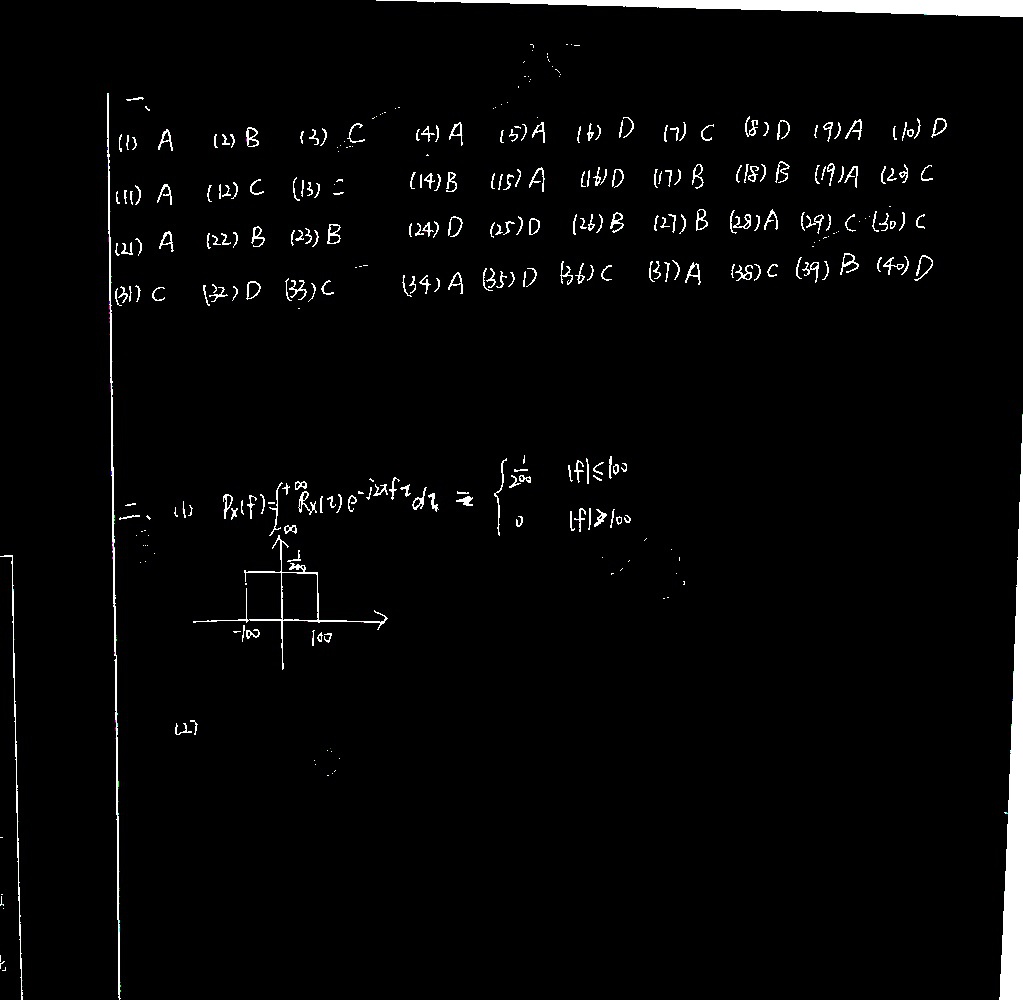 一、
(1) A (2) B (3) C (4) A (5) A (6) D (7) C (8) D (9) A (10) D
(11) A (12) C (13) (14) B (15) A (16) D (17) B (18) B (19) A (20) C
(21) A (22) B (23) B (24) D (25) D (26) B (27) B (28) A (29) C (30) C
(31) C (32) D (33) C (34) A (35) D (36) C (37) A (38) C (39) B (40) D
二、(1) Px(f)=∫_{-∞}^{+∞} Rx(τ)e^{-j2πfτ}dτ = { 1/200 |f|≤100
0 |f|>100
1/200
-100 100
(2)